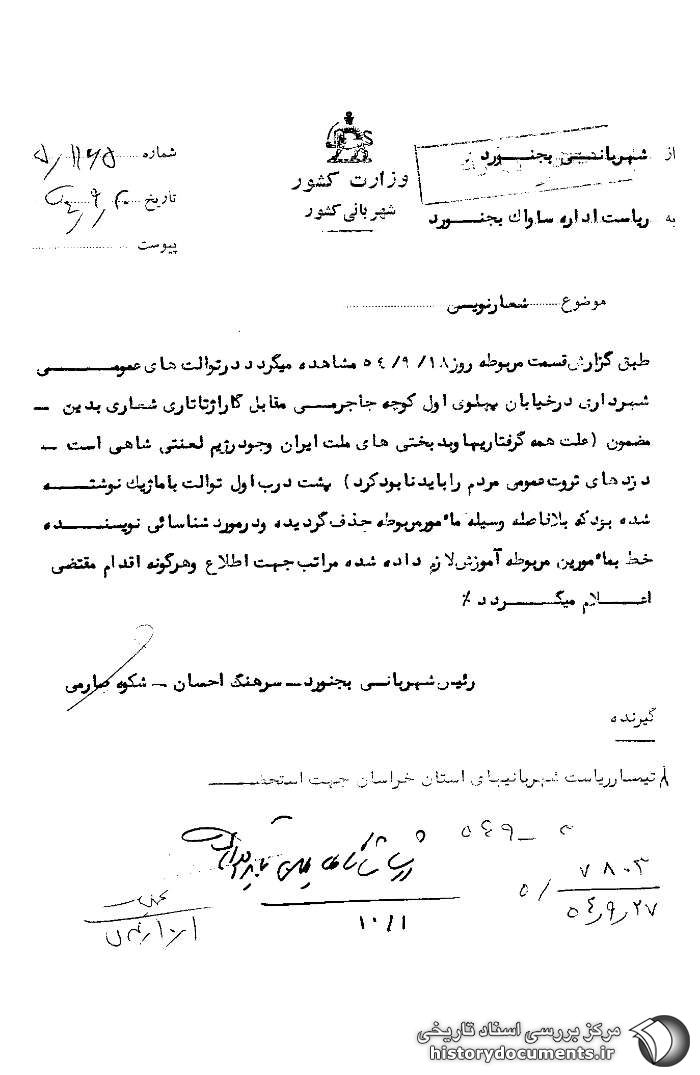 از شهربانی بجنورد
به ریاست اداره ساواك بجنورد
وزارت کشور
شهربانی کشور
شماره
تاریخ
پیوست
موضوع شعارنویسی
طبق گزارش قسمت مربوطه روز ۵۴/۹/۱۸ مشاهده میگردد درتوالت های عمومی
شهرداری درخیابان پهلوی اول کوچه جاجرمی مقابل گاراژتاتاری شعاری بدین ـ
مضمون (علت همه گرفتاریها وبدبختی های ملت ایران وجود رژیم لعنتی شاهی است ـ
دزدهای ثروت عمومی مردم را باید نابود کرد) پشت درب اول توالت باماژیك نوشته
شده بود که بلافاصله وسیله مأمورمربوطه حذف گردیده ودرمورد شناسائی نویسنده
خط بمأمورین مربوطه آموزش لازم داده شده مراتب جهت اطلاع وهرگونه اقدام مقتضی
اعلام میگردد ٪
رئیس شهربانی بجنورد ـ سرهنگ احسان ـ شکوه صارمی
گیرنده
تیمسار ریاست شهربانیهای استان خراسان جهت استحضار
۷۸۰۳
۵۴٫۹٫۲۷
۱۰/۱
مرکز بررسی اسناد تاریخی
historydocuments.ir